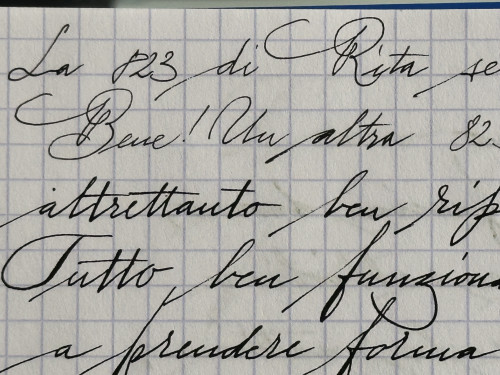 La 823 di Rita se
Bene! Un altra 823
attrettanto ben rip
Tutto ben funziona
a prendere forma